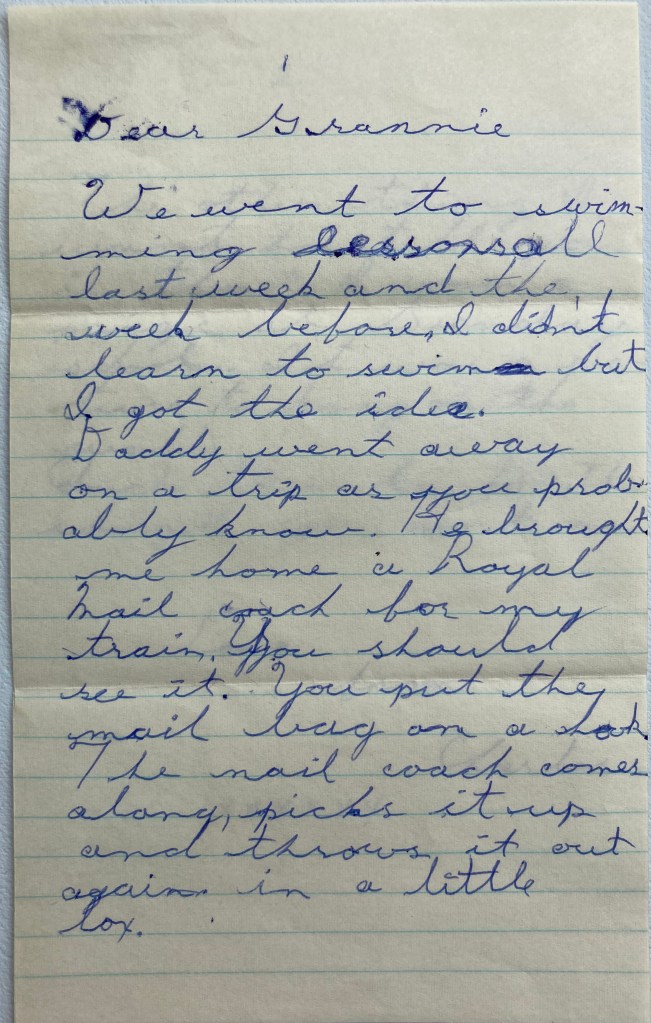 1
Dear Grannie
We went to swim-
ming lessons all
last week and the
week before, I didn't
learn to swim but
I got the idea.
Daddy went away
on a trip as you prob-
ably know. He brought
me home a Royal
Mail coach for my
train. You should
see it. You put the
mail bag on a hook
The mail coach comes
along, picks it up
and throws it out
again in a little
box.